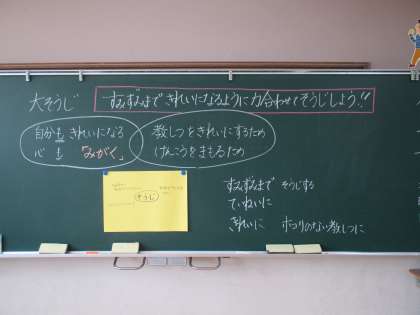 大そうじ
すみずみまできれいになるように力合わせてそうじしよう!!
自分も きれいになる
心も 「みがく」
教しつをきれいにするため
けんこうをまもるため
そうじ
すみずみまで そうじする
ていねいに
きれいに ホコリのない教しつに